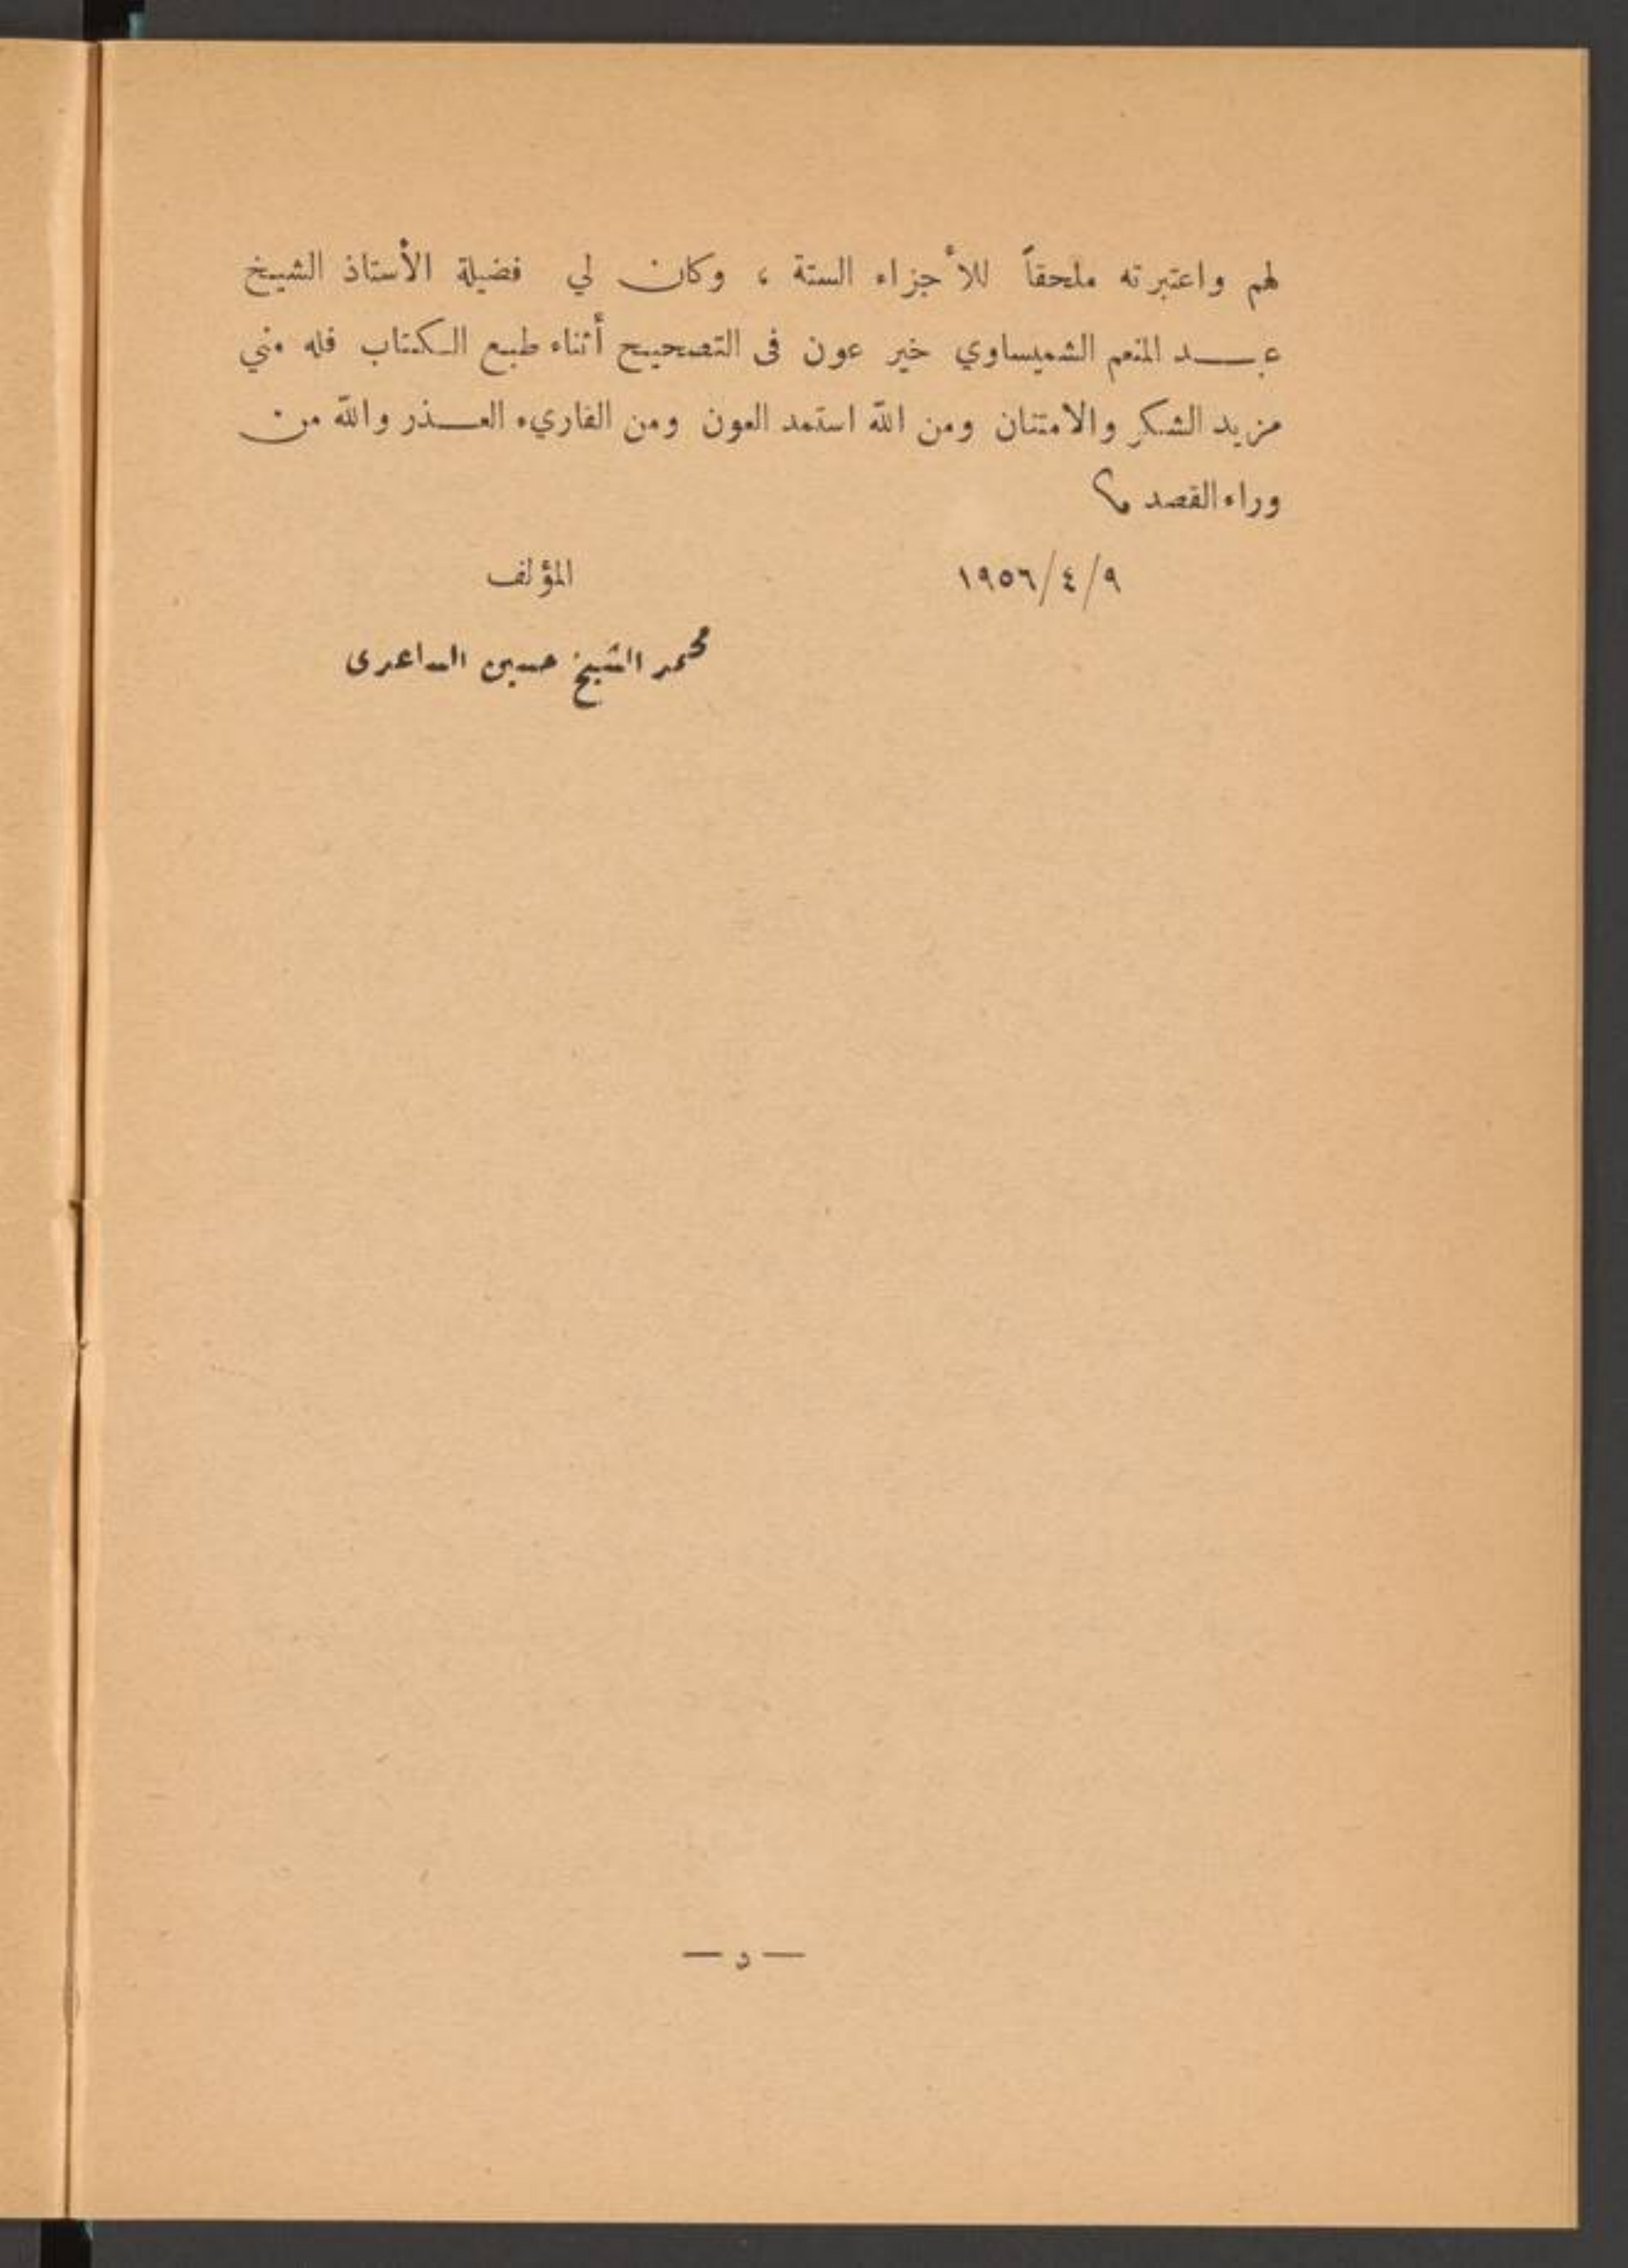 لهم واعتبرته ملحقاً للأجزاء الستة ، وكان لي فضيلة الأستاذ الشيخ
عبد المنعم الشميساوي خير عون فى التصحيح أثناء طبع الكتاب فله مني
مزيد الشكر والامتنان ومن الله استمد العون ومن القاريء العذر والله من
وراء القصد
١٩٥٦/٤/٩
المؤلف
محمد الشيخ حسين الساعدى
— د —